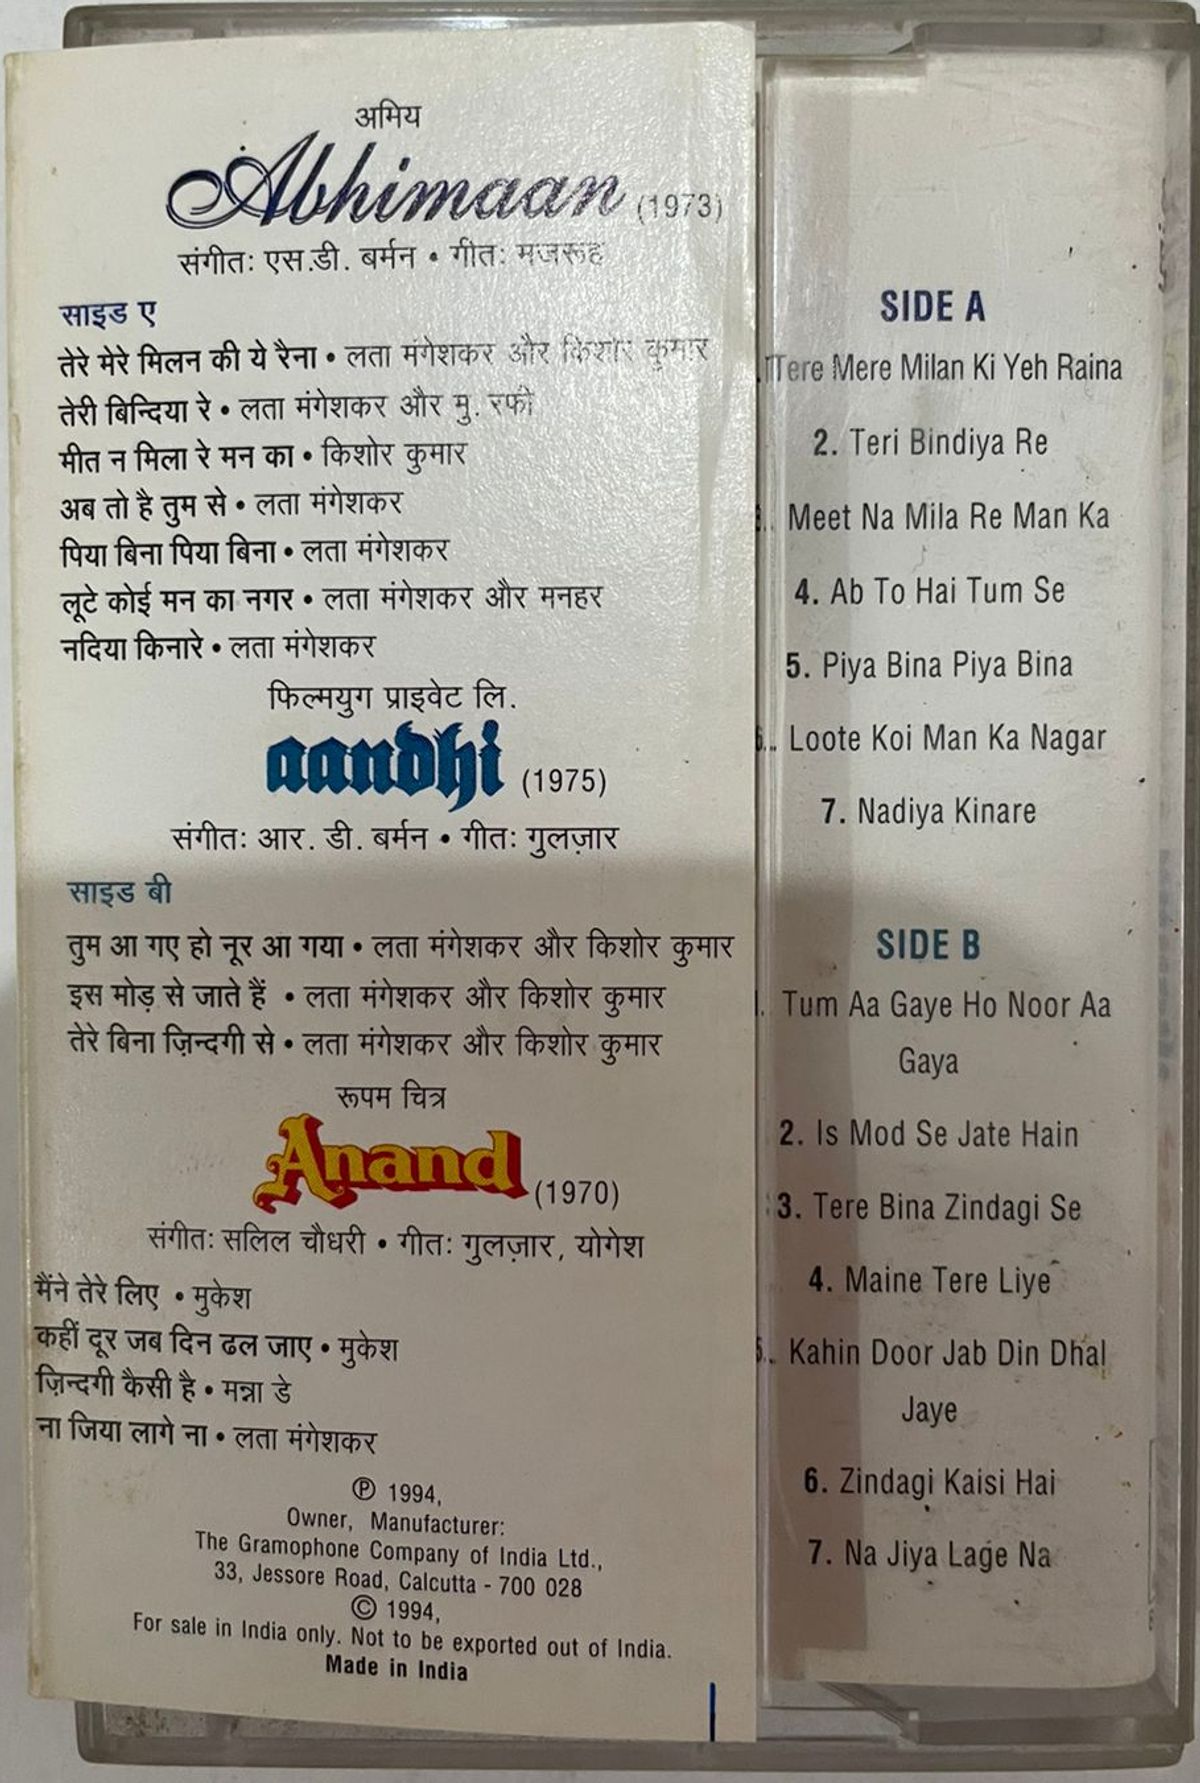 अमिय
Abhimaan (1973)
संगीतः एस.डी. बर्मन • गीतः मजरूह
साइड ए
तेरे मेरे मिलन की ये रैना • लता मंगेशकर और किशोर कुमार
तेरी बिन्दिया रे • लता मंगेशकर और मु. रफी
मीत न मिला रे मन का • किशोर कुमार
अब तो है तुम से • लता मंगेशकर
पिया बिना पिया बिना • लता मंगेशकर
लूटे कोई मन का नगर • लता मंगेशकर और मनहर
नदिया किनारे • लता मंगेशकर
फिल्मयुग प्राइवेट लि.
aandhi (1975)
संगीतः आर. डी. बर्मन • गीतः गुलज़ार
साइड बी
तुम आ गए हो नूर आ गया • लता मंगेशकर और किशोर कुमार
इस मोड़ से जाते हैं • लता मंगेशकर और किशोर कुमार
तेरे बिना ज़िन्दगी से • लता मंगेशकर और किशोर कुमार
रूपम चित्र
Anand (1970)
संगीतः सलिल चौधरी • गीतः गुलज़ार, योगेश
मैंने तेरे लिए • मुकेश
कहीं दूर जब दिन ढल जाए • मुकेश
ज़िन्दगी कैसी है • मन्ना डे
ना जिया लागे ना • लता मंगेशकर
Ⓟ 1994,
Owner, Manufacturer:
The Gramophone Company of India Ltd.,
33, Jessore Road, Calcutta - 700 028
© 1994,
For sale in India only. Not to be exported out of India.
Made in India
SIDE A
Tere Mere Milan Ki Yeh Raina
2. Teri Bindiya Re
Meet Na Mila Re Man Ka
4. Ab To Hai Tum Se
5. Piya Bina Piya Bina
Loote Koi Man Ka Nagar
7. Nadiya Kinare
SIDE B
Tum Aa Gaye Ho Noor Aa
Gaya
2. Is Mod Se Jate Hain
3. Tere Bina Zindagi Se
4. Maine Tere Liye
Kahin Door Jab Din Dhal
Jaye
6. Zindagi Kaisi Hai
7. Na Jiya Lage Na